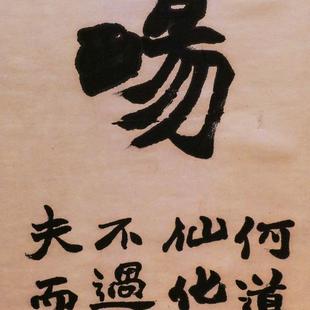 何道
仙化
不過
夫而